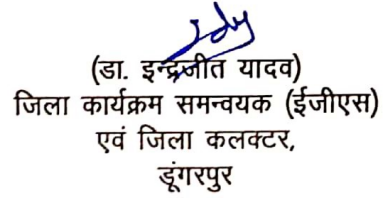 (डा. इन्द्रजीत यादव)
जिला कार्यक्रम समन्वयक (ईजीएस)
एवं जिला कलक्टर,
डूंगरपुर